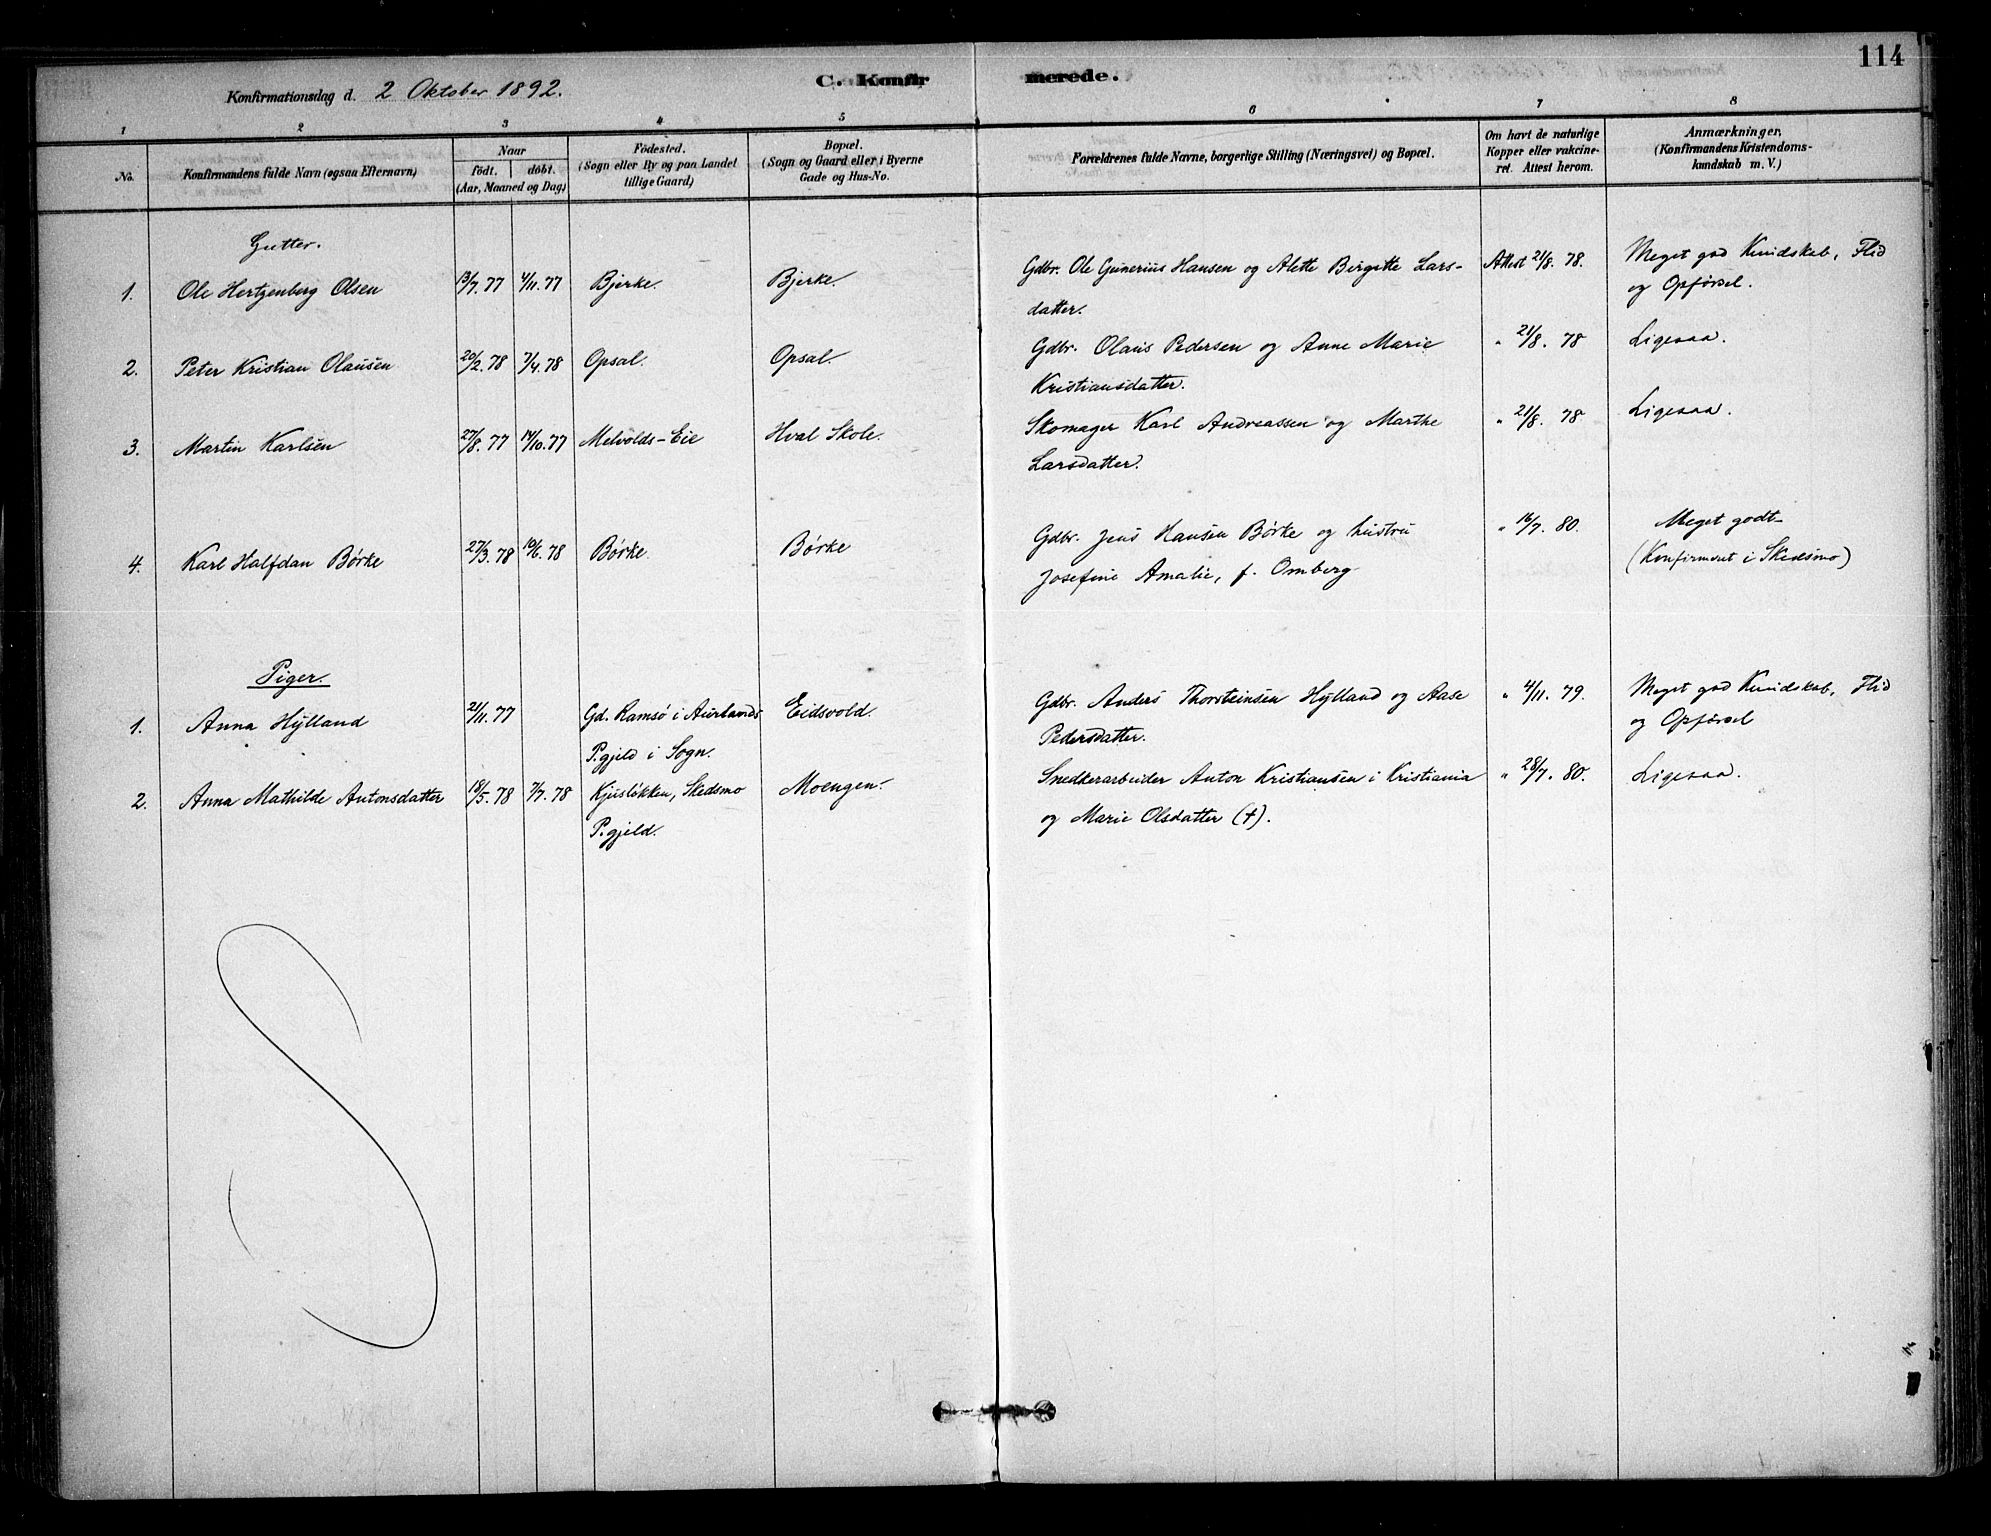 114
C. Konfirmerede.
Konfirmationsdag d. 2 Oktober 1892.
1 2 3 4 5 6 7 8
No.
Konfirmandens fulde Navn (ogsaa Efternavn)
Naar
födt. döbt.
(Aar, Maaned og Dag)
Födested.
(Sogn eller By og paa Landet
tillige Gaard)
Bopæl.
(Sogn og Gaard eller i Byerne
Gade og Hus-No.
Forældrenes fulde Navne, borgerlige Stilling (Næringsvei) og Bopæl.
Om havt de naturlige
Kopper eller vakcine-
ret. Attest herom.
Anmærkninger,
(Konfirmandens Kristendoms-
kundskab m. V.)
Gutter.
1. Ole Hertzenberg Olsen 13/7. 77 4/11. 77 Bjerke. Bjerke. Gdbr. Ole Gunerius Hansen og Alette Birgitte Lars- Attest 21/8. 78. Meget god Kundskab, Flid
datter. og Opførsel.
2. Peter Kristian Olausen 20/2. 78 7/4. 78 Opsal. Opsal Gdbr. Olaus Pedersen og Anne Marie " 21/8. 78 Ligesaa.
Kristiansdatter.
3. Martin Karlsen 27/8. 77 14/10. 77 Melvolds-Eie Hval Skole. Skomager Karl Andreassen og Marthe " 21/8. 78 Ligesaa.
Larsdatter.
4. Karl Halfdan Børke 27/3. 78 10/6. 78 Børke. Børke Gdbr. Jens Hansen Børke og hustru " 16/7. 80. Meget godt-
Josefine Amalie, f. Omberg (Konfirmeret i Skedsmo)
Piger.
1. Anna Hylland 21/11. 77 Gd. Ramsö i Aurlands Eidsvold. Gdbr. Anders Thorsteinsen Hylland og Aase " 4/11. 79. Meget god Kundskab, Flid
P.gjeld i Sogn. Pedersdatter. og Opførsel
2. Anna Mathilde Antonsdatter 18/5. 78 7/7. 78 Kjusløkken, Skedsmo Moengen. Snedkerarbeider Anton Kristiansen i Kristiania " 28/7. 80. Ligesaa.
P.gjeld. og Marie Olsdatter (†).